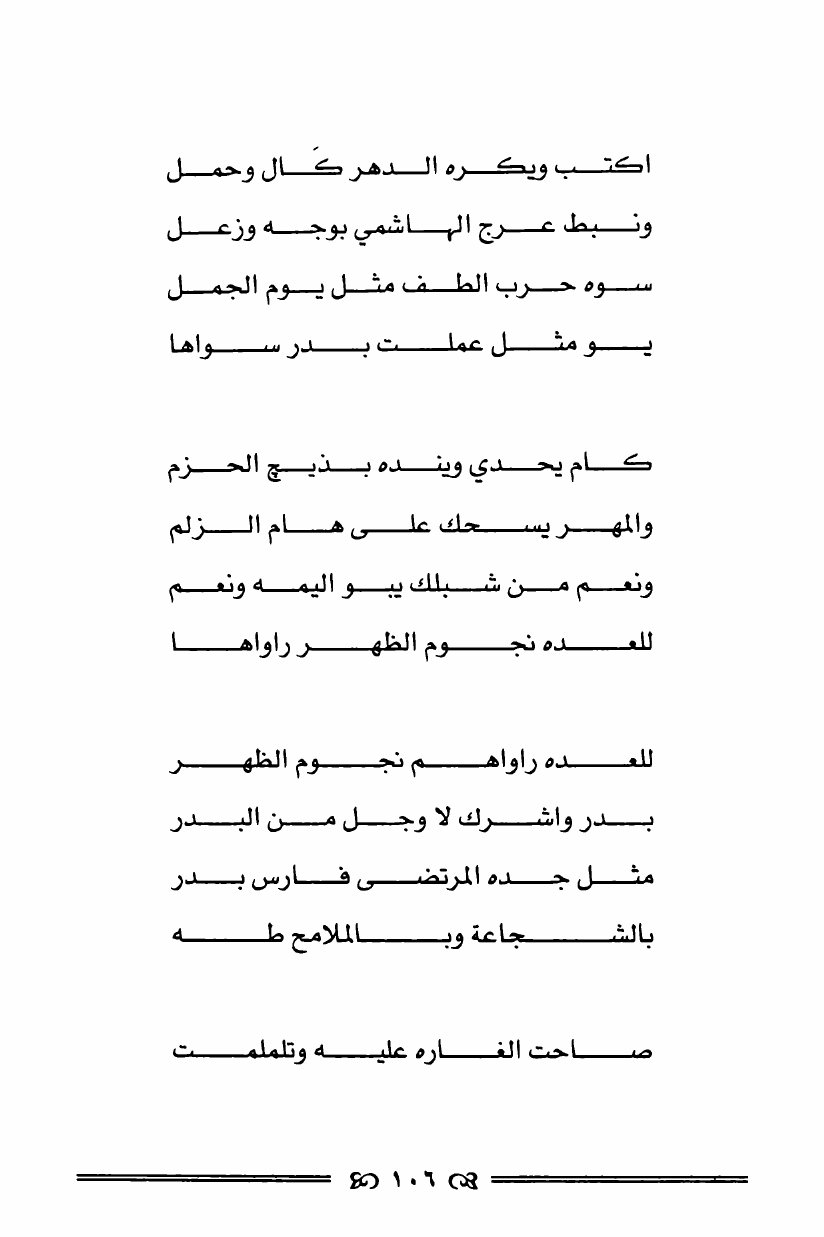 اكتب ويكره الدهر كَال وحمل
ونبط عرج الهاشمي بوجه وزعل
سوه حرب الطف مثل يوم الجمل
يو مثل عملت بدر سواها
كام يحدي وينده بذيچ الحزم
والمهر يسحك على هام الزلم
ونعم من شبلك يبو اليمه ونعم
للعده نجوم الظهر راواها
للعده راواهم نجوم الظهر
بدر واشرك لا وجل من البدر
مثل جده المرتضى فارس بدر
بالشجاعة وبالملامح طه
صاحت الغاره عليه وتلملمت
١٠٦